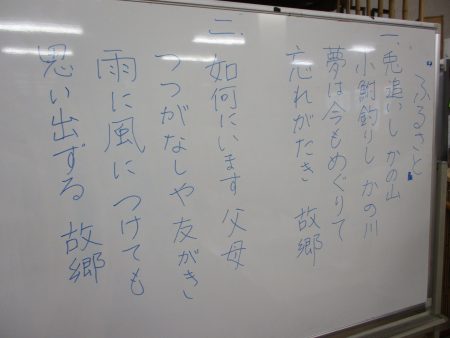 ふるさと
一、兎追いしかの山
小鮒釣りしかの川
夢は今もめぐりて
忘れがたき 故郷
二、如何にいます 父母
つつがなしや友がき
雨に風に つけても
思い出ずる 故郷